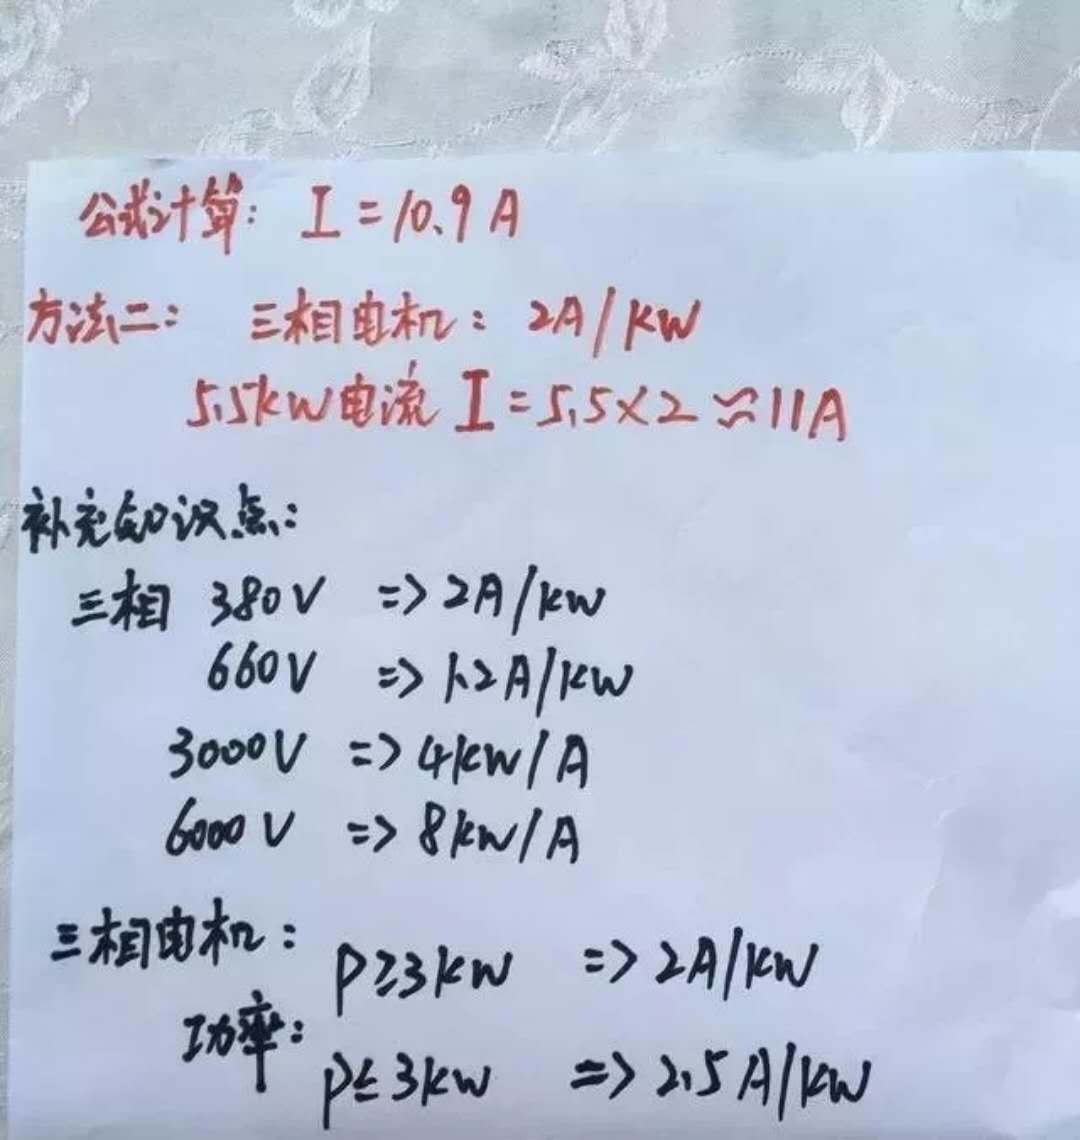 公式计算: I=10.9A
方法二: 三相电机: 2A/KW
5.5kW电流 I=5.5×2≈11A
补充知识点:
三相 380V => 2A/kW
660V => 1.2A/kW
3000V => 4kW/A
6000V => 8kW/A
三相电机: P≥3kW => 2A/kW
功率: P≤3kW => 2.5A/kW